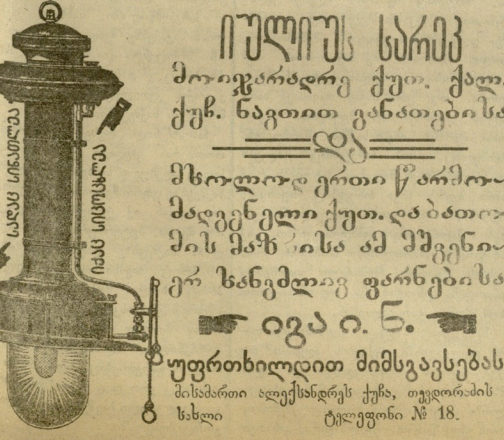 იულიუს სარეპ
მოიჯარადრე ქუთ. ქალ.
ქუჩ. ნავთით განათებისა
და
მხოლოდ ერთი წარმო-
მადგენელი ქუთ. და ბათო
მის მაზ ისა ამ მშვენი-
ერ სანგმლივ ფარნებისა
იგა ი. ნ.
უფრთხილდით მიმსგავსებას
მისამართი ალექსანდრეს ქუჩა, თევდორაძის
სახლი ტელეფონი № 18.